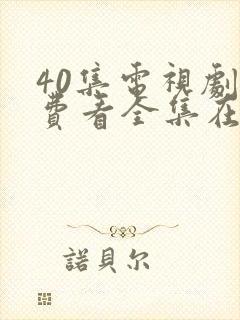 40集電視劇
費看全集在
諾貝尔